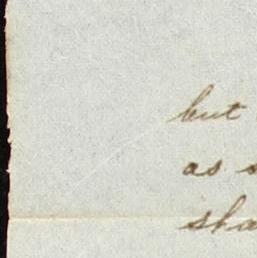 but
as s
sha